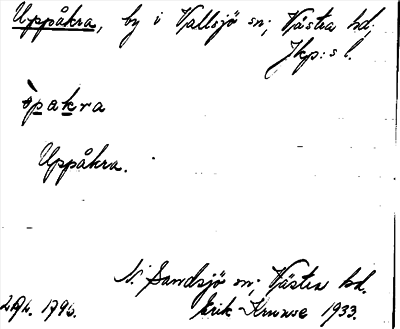 Uppåkra, by i Vallsjö sn; Västra hd;
Jkp:s l.
òpakra
Uppåkra.
N. Sandsjö sn; Västra hd.
Erik Kruuse 1933.